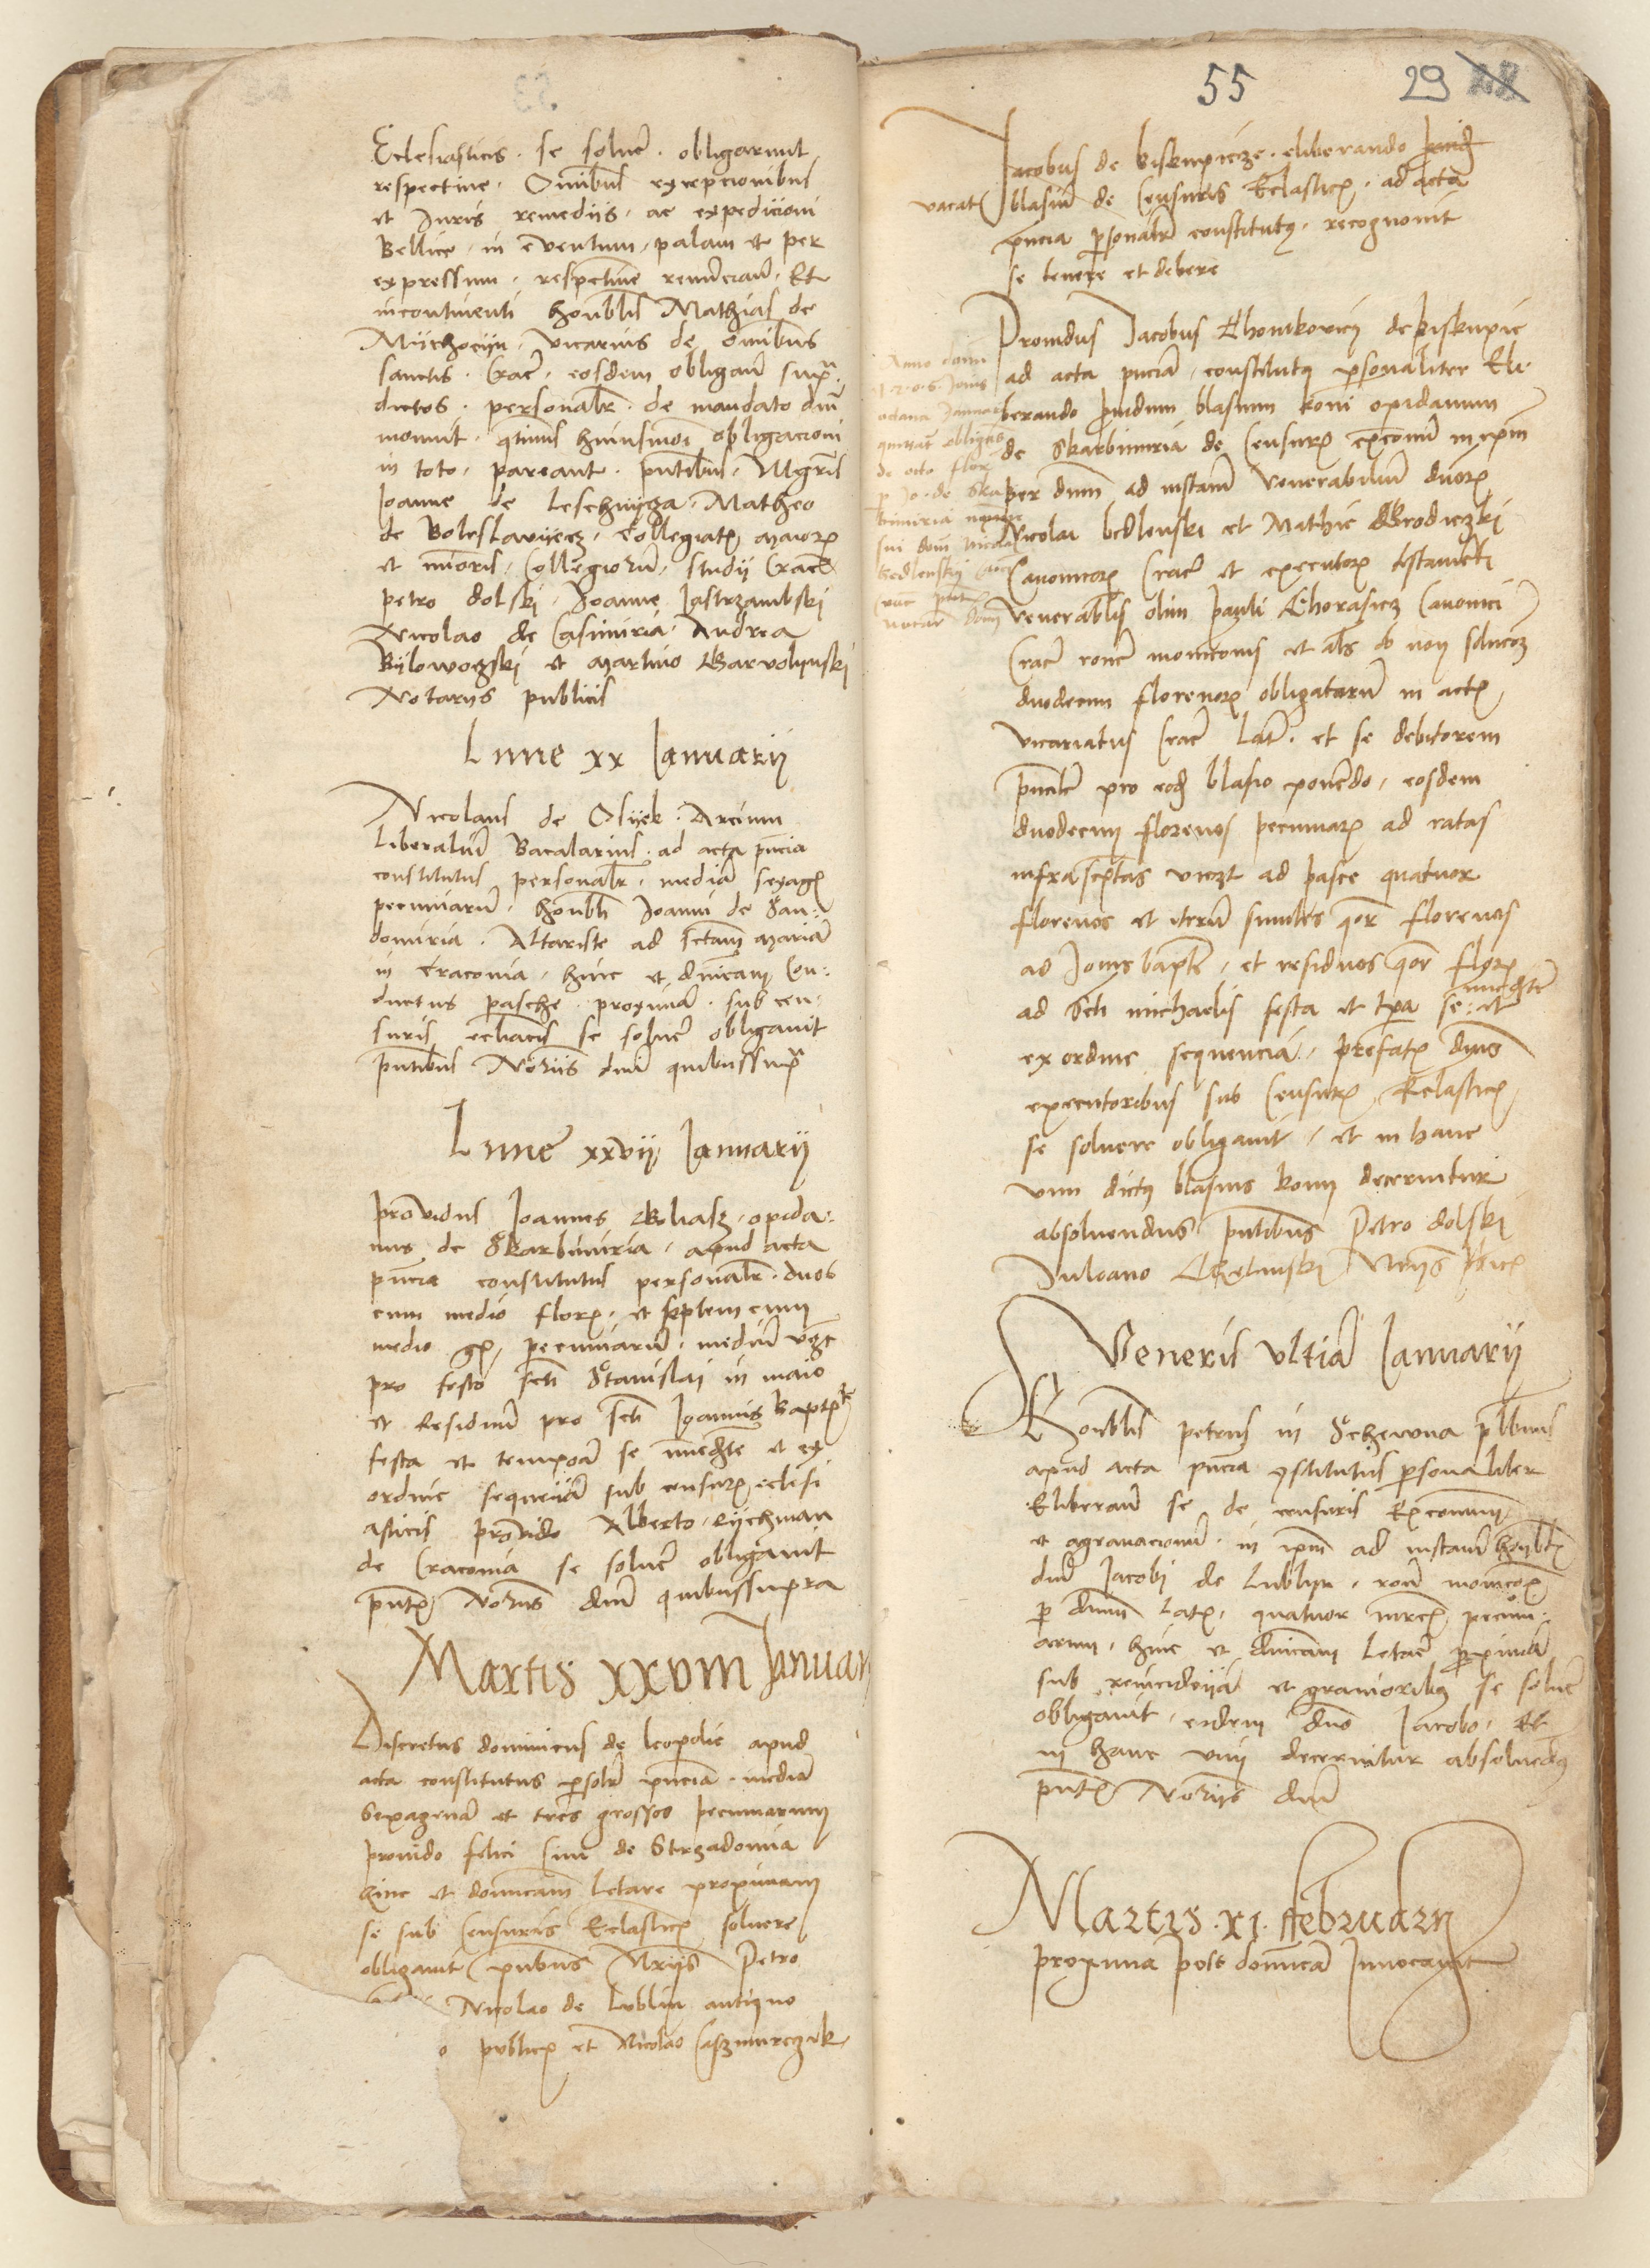 Ecclesiasticis · se soluer · obligarunt
respective · Omnibus excepcionibus
et Juris remediis · ac expedicioni
Bellice · in eventum · palam et per
expressum · respective renuncian · Et
incontinenti honblis Mathias de
Myechocyn · vicarius de omnibus
sanctis · Crac · eosdem obligan supra
dictos · personalr · de mandato dni
monuit · qtinus huiusmoi obligacioni
in toto · pareant · pntibus · Mgris
Joanne de Leschnycza · Matheo
de Boleslavyecz · Collegiatis maioris
et minoris · Collegiorum · studii Crac
petro dolski · Joanne Jastrzambski
Nicolao de Casimiria · Andrea
Bylowozski et Martino Garvolynski
Notariis publicis
Lune xx Januarii
Nicolaus de Osyek · Arcium
Liberalium Bacalarius · ad acta pncia
constitutus personalr · mediam sexag
pecuniarum · honbli Joanni de San
domiria · Altariste ad sctam Mariam
in Cracovia · hinc et dnicam Con
ductus pasche · proximam · sub cen
suris eccliacis se soluer obligavit
pntibus Notariis dni quibus supra
Lune xxvij Januarii
providus Joannes Goliasz · opida
nus de Skarbimiria · apud acta
pncia constitutus personalr · duos
cum medio floren · et septem cum
medio gr · pecuniarum · medium vidzt
pro festo scti Stanislai in maio
et Residuum pro scti Joannis Baptiste
festa et tempora se immediate et ex
ordine sequen sub censuris ecclesi
asticis provido Alberto Rychman
de Cracovia se soluer obligavit
pntibus Notariis dni quibus supra
Martis xxviii Januar
Discretus dominicus de leopolie apud
acta constitutus psonalr pncia · mediam
Sexagenam et tres grossos pecuniarum
provido felici de Strzadomia
hinc et dominicam letare proximam
se sub Censuris Ecclasticis solvere
obligavit pntibus Notariis Petro
Nicolao de Lublin antiquo
o publicis et Nicolao Caszmirczyk
55 29
Jacobus de biskupicze · eliberando
vacat blasium de Censuris Ecclasticis · ad acta
pncia personalr constitutus · recognovit
se tenere et debere
Providus Jacobus Chomkovicz de piskupic
ad acta pncia constitutus personaliter Eli
berando providum blasium koni opidanum
de Skarbimiria de Censuris excoi in ipm
per dnum ad instam venerabilium dnorum
Nicolai bedlenski et Mathie Grodiczki
Canonicorum Crac et executorum testamenti
venerablis olim pauli Chorasicz Canonici
Crac rone monicionis et als ob non solucoem
duodecim florenorum obligatarum in actis
vicariatus Crac Lat · et se debitorem
pncialr pro eodem blasio ponendo · eosdem
duodecim florenos pecuniarum ad ratas
infrascriptas videlt ad pasce quatuor
florenos et iterum similes qtuor florenos
ad Jonis bapte · et residuos qtuor florenos
ad Scti michaelis festa et tpa se immediate
ex ordine sequencia · prefatis dnis
executoribus sub Censuris Ecclasticis
se soluere obligavit · et in hanc
vim dictus blasius koni decernitur
absolvendus pntibus Petro dolski
Juliano Notariis publicis
Anno dom
Veneris ultima Januarii
Honblis petrus in Schewna plbanus
apud acta pncia constitutus personaliter
Eliberan se de censuris Excommunic
et agravacionum · in ipm ad instam honblis
dni Jacobi de Lublyn · rone monicois
p dnum Latis · quatuor mrcis pecuni
arum · hinc et dnicam Letare proximam
sub reincidencia et gravioribus se soluer
obligavit · eidem dno Jacobo · Et
in hanc vim decernitur absolvendus
pntibus Notariis dni
Martis · xi · februarii
proxima post domicam Invocavit